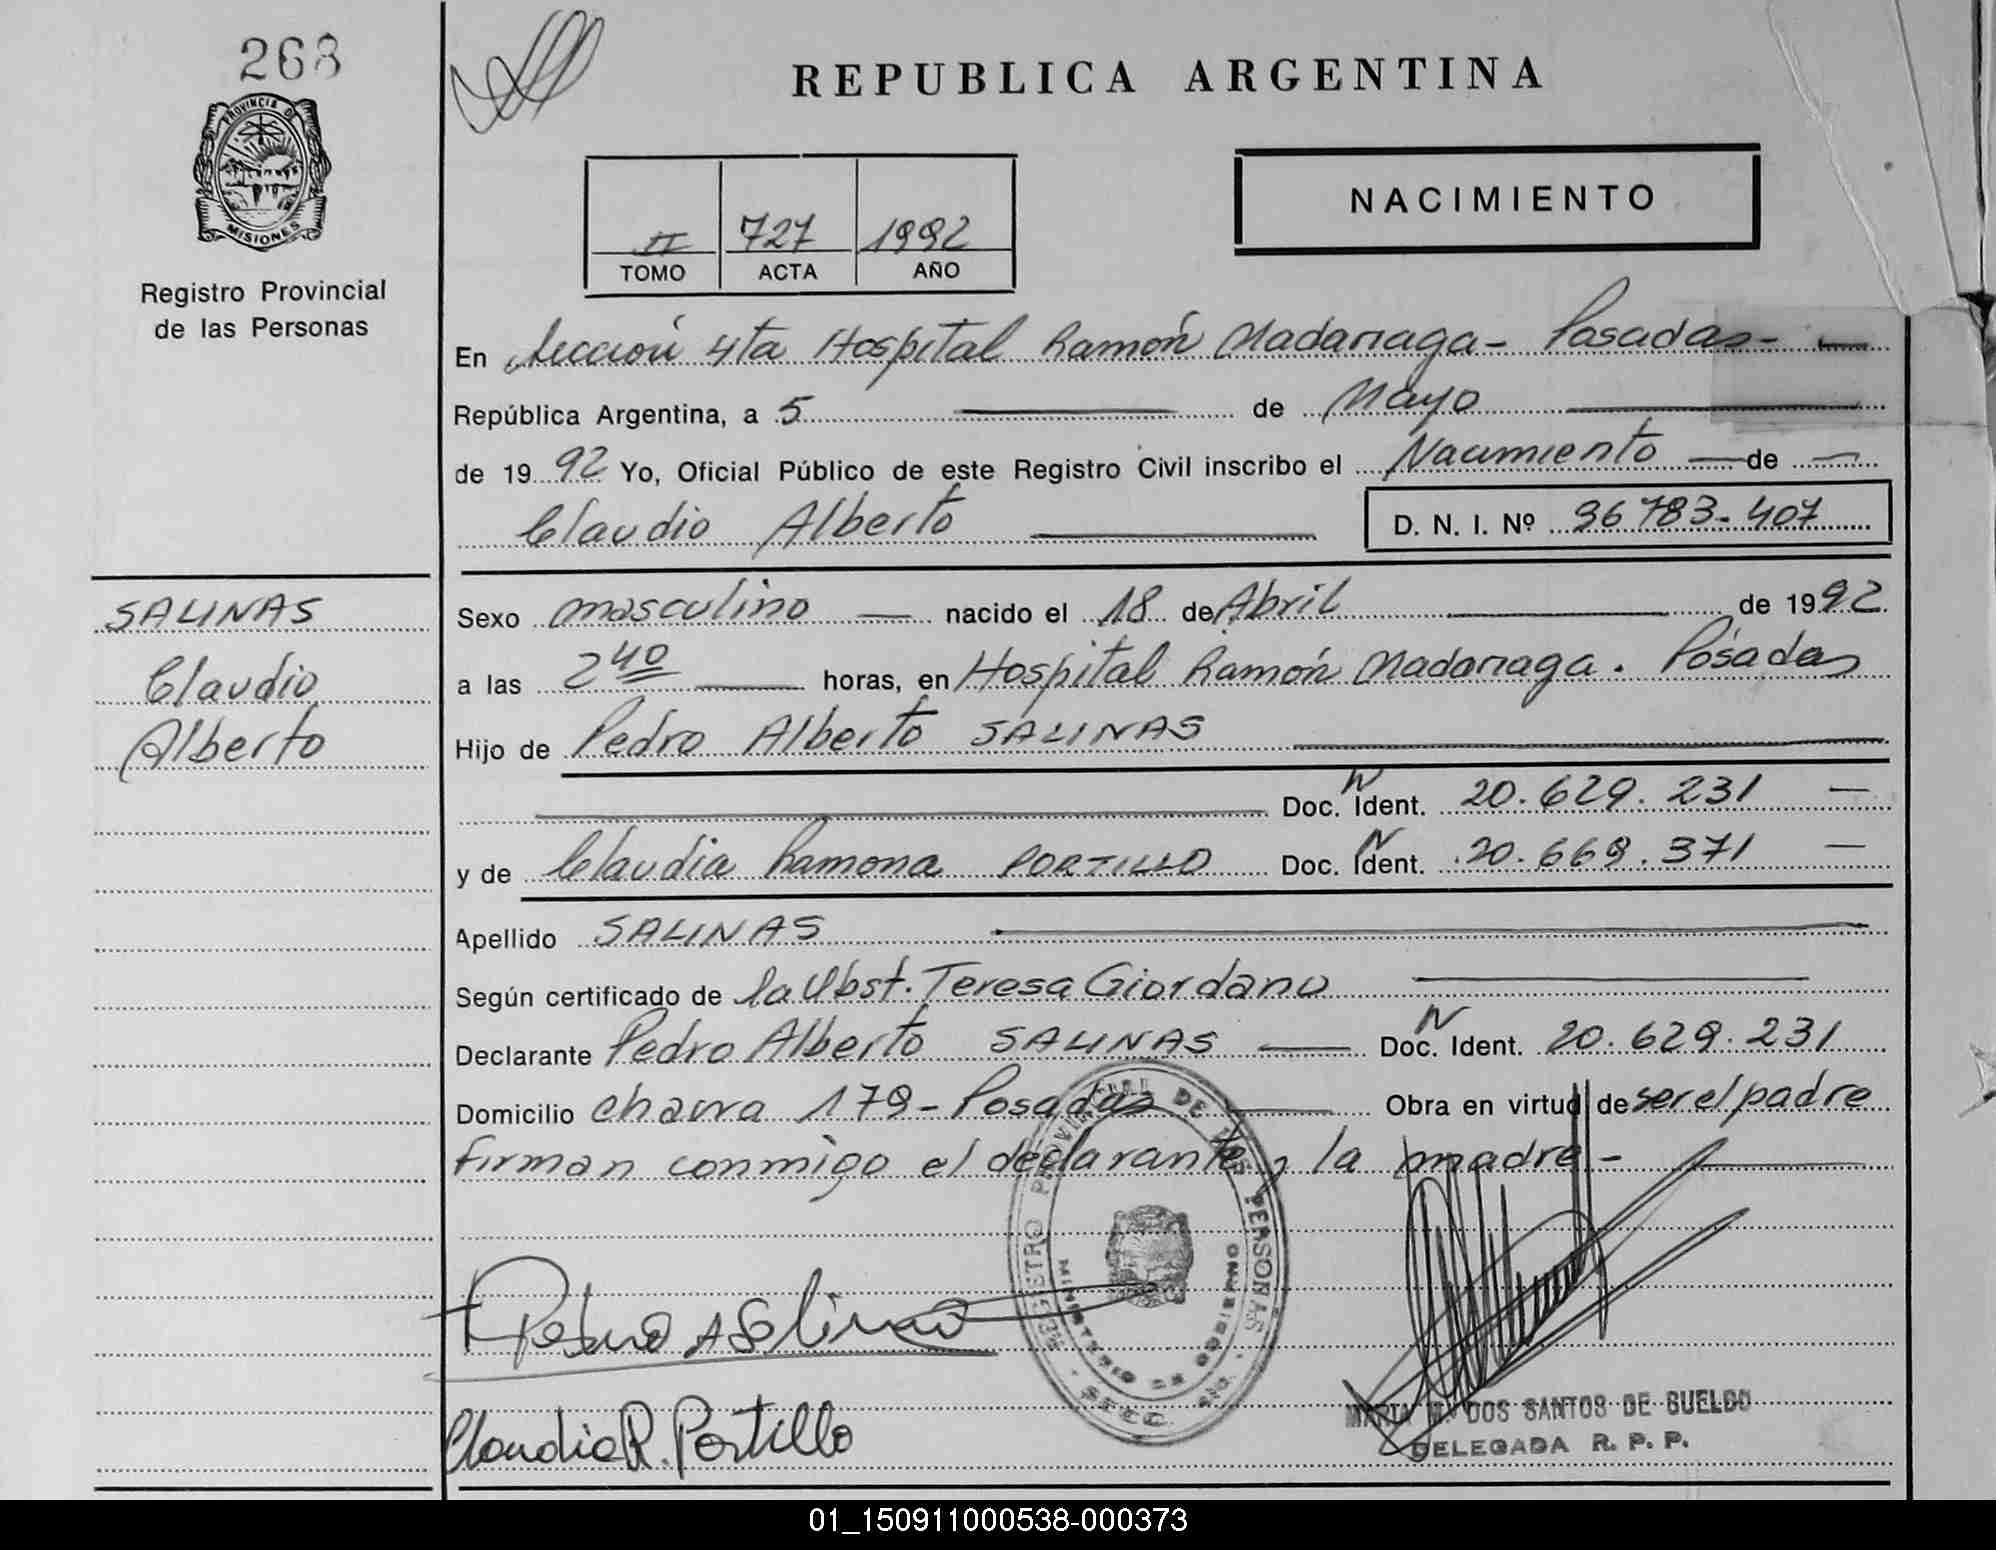 268
PROVINCIA DE
MISIONES
Registro Provincial
de las Personas
REPUBLICA ARGENTINA
NACIMIENTO
II 727 1992
TOMO ACTA AÑO
En Sección 4ta Hospital Ramón Madariaga - Posadas -
República Argentina, a 5 de Mayo
de 1992 Yo, Oficial Público de este Registro Civil inscribo el Nacimiento de
Claudio Alberto D. N. I. Nº 36783-407
SALINAS
Claudio
Alberto
Sexo masculino nacido el 18 de Abril de 1992
a las 2 40 horas, en Hospital Ramón Madariaga. Posadas
Hijo de Pedro Alberto SALINAS
Doc. Ident. 20.629.231
y de Claudia Ramona PORTILLO Doc. Ident. 20.669.371
Apellido SALINAS
Según certificado de la Obst. Teresa Giordano
Declarante Pedro Alberto SALINAS Doc. Ident. 20.629.231
Domicilio chacra 179 - Posadas Obra en virtud de ser el padre
firman conmigo el declarante y la madre -
REGISTRO PROVINCIAL DE LAS PERSONAS
MINISTERIO DE GOBIERNO
Pedro A Salinas
Claudia R. Portillo
DOS SANTOS DE
DELEGADA R. P. P.
01_150911000538-000373